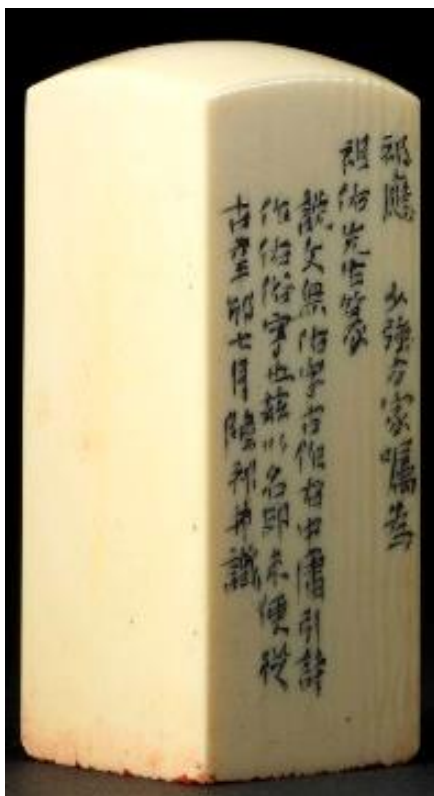 祁應 少強方家囑為
祖佑先生篆
說文無佑字古作右中庸引詩
作佑俗字也茲以名印未便從
古 卯七月 祁并識